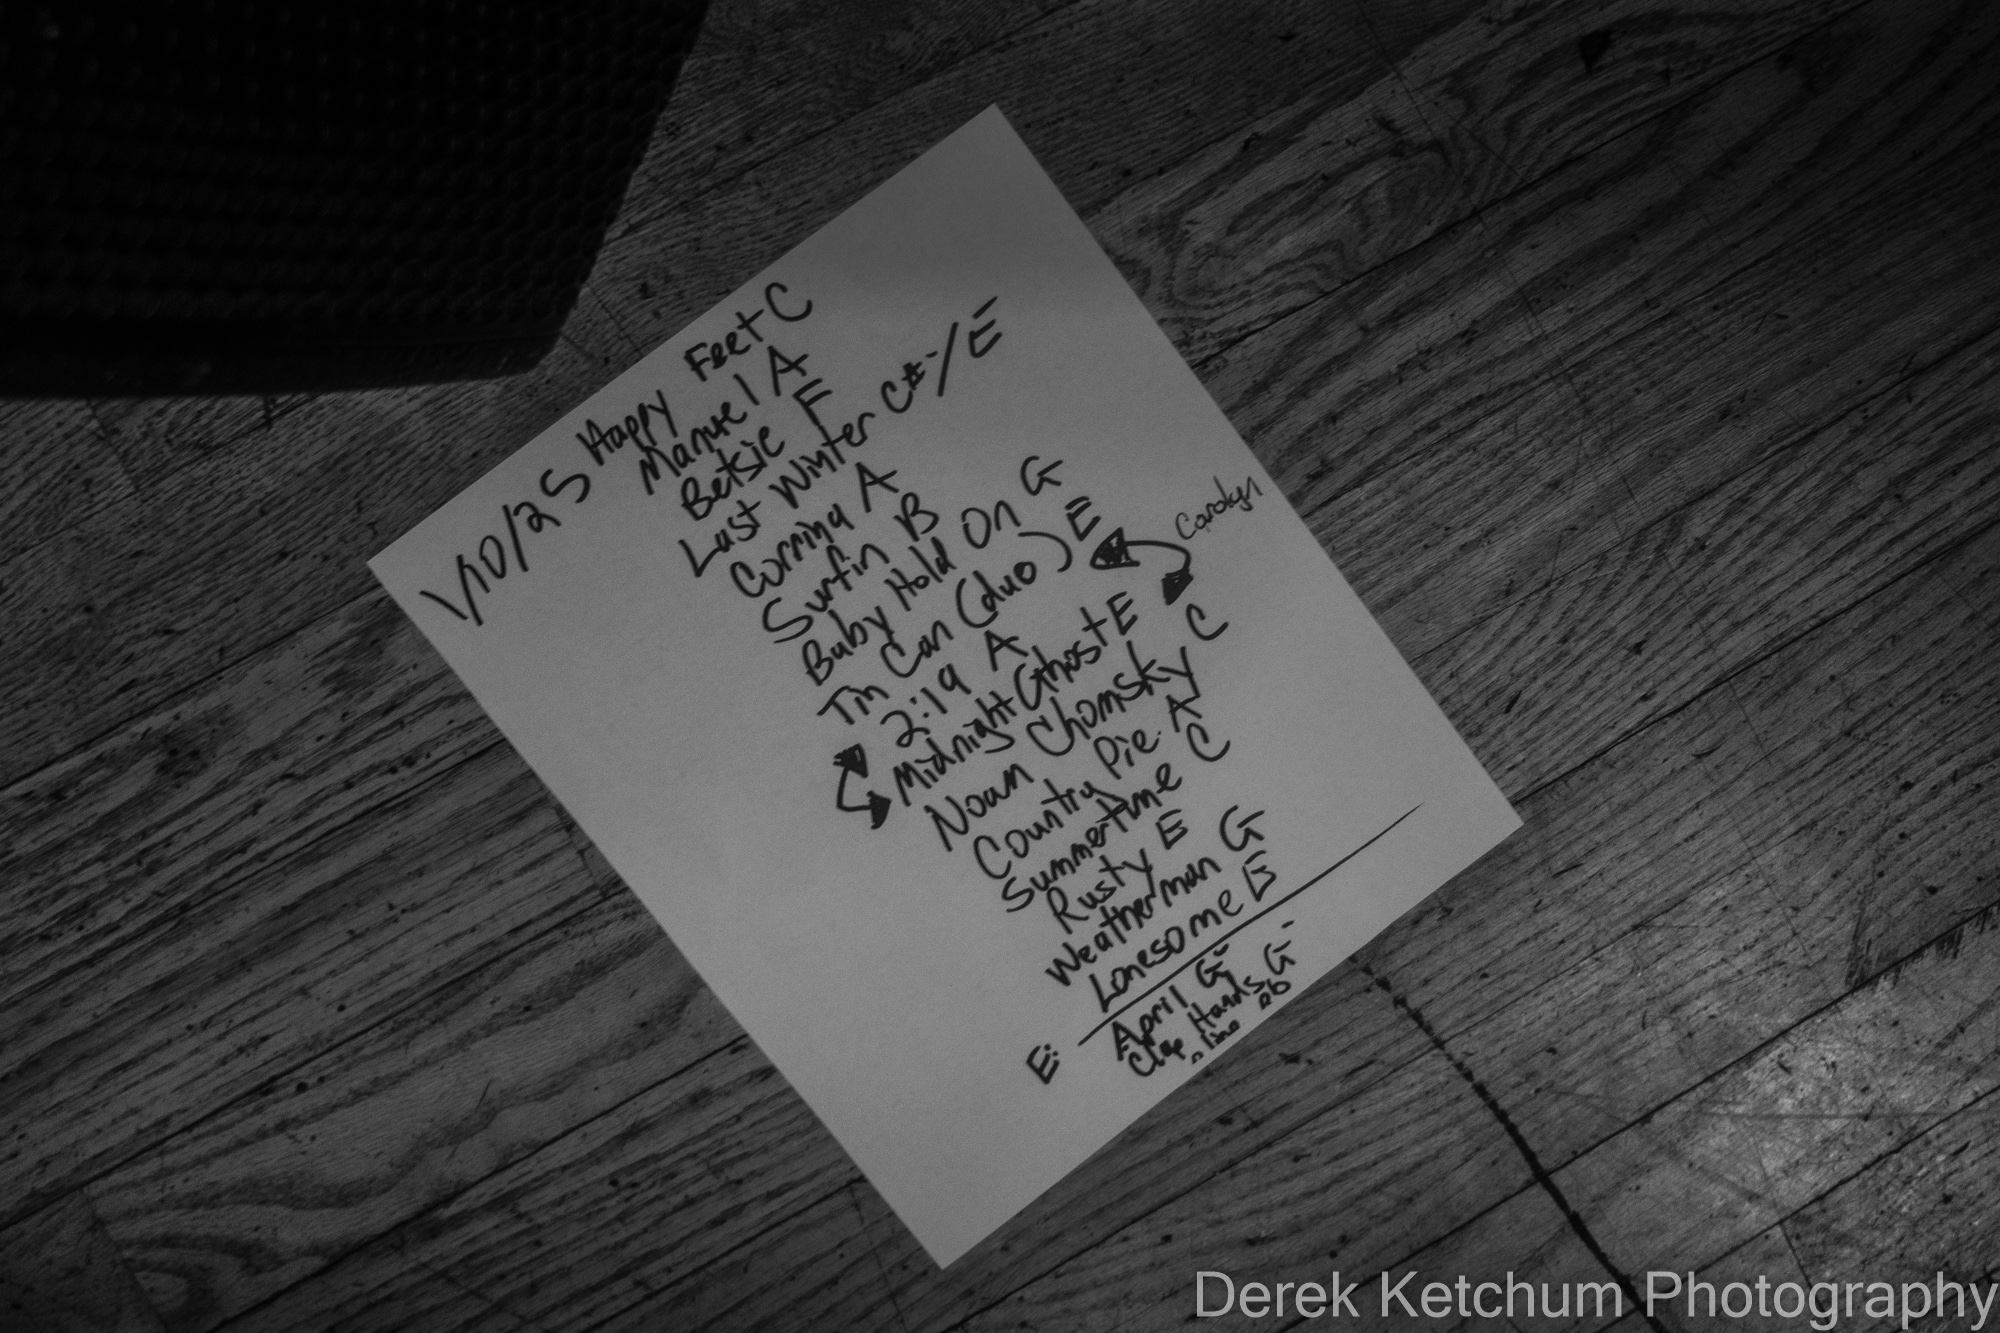 1/10/25
Happy Feet C
Manuel A
Betsie F
Last Winter C#-/E
Corrina A
Surfin B
Baby Hold On G
Tin Can (duo) E
Carolyn
2:19 A
Midnight Ghost E
Noam Chomsky C
Country Pie A
Summertime C
Rusty E
Weatherman G
Lonesome E
E: April G-
Clap Hands G-
Derek Ketchum Photography